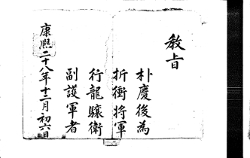 教旨
朴慶後為
折衝將軍
行龍驤衛
副護軍者
康熙二十八年十二月初六日